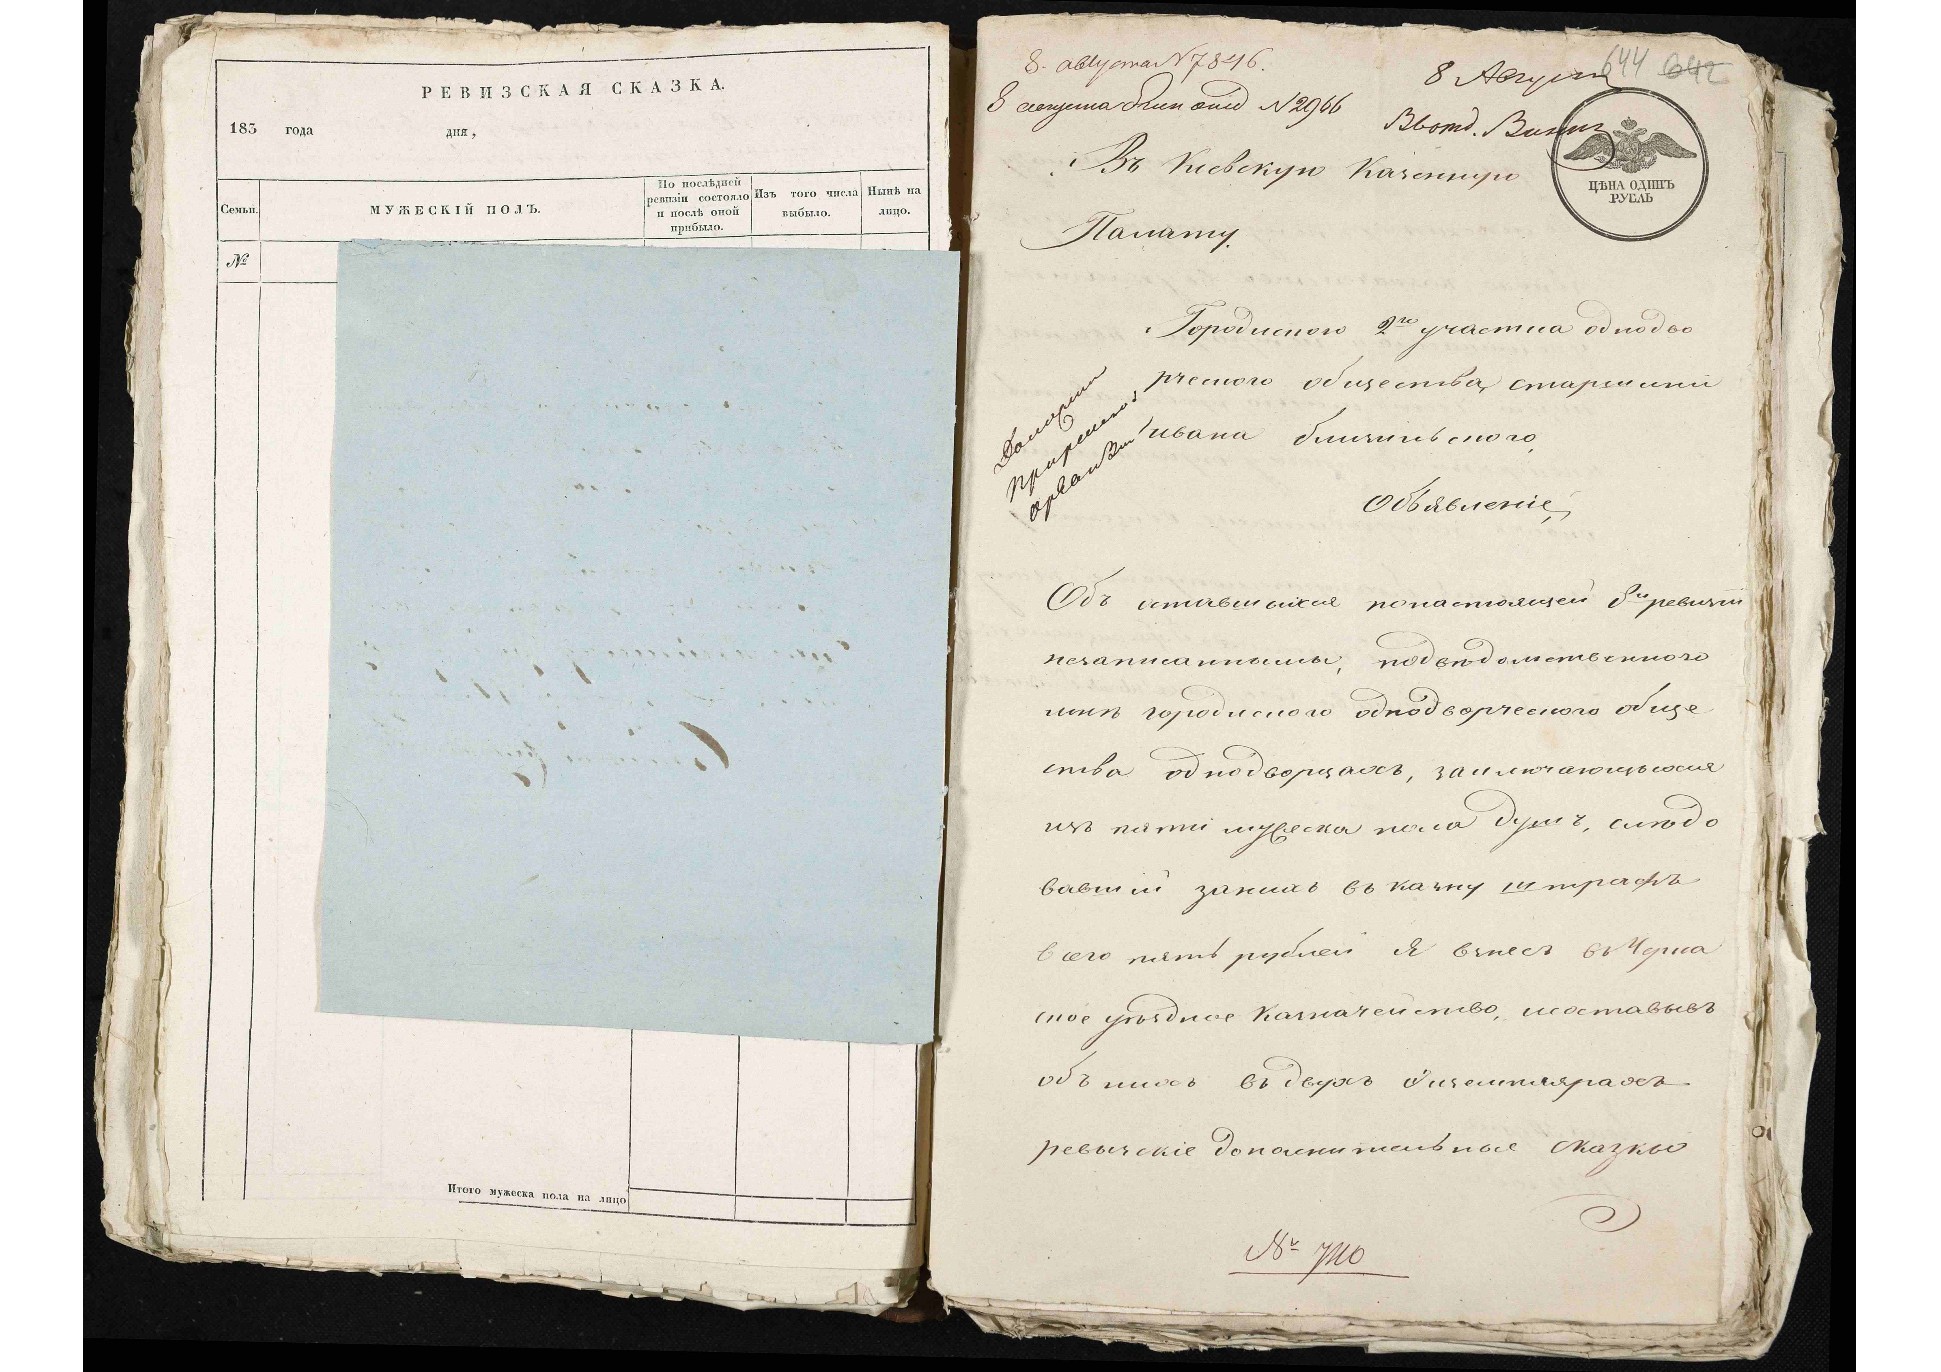 РЕВИЗСКАЯ СКАЗКА.
185 года дня,
Семьи.
МУЖЕСКІЙ ПОЛЪ.
По послѣдней ревизіи состояло и послѣ оной прибыло.
Изъ того числа выбыло.
Нынѣ на лицо.
№
Итого мужеска пола на лицо
8 августа N 7846.
8 августа N 2966
8 Августа
644 642
ЦѢНА ОДИНЪ
РУБЛЬ
Въ Кіевскую Казенную
Палату.
Городиского 2го участка однодво
рческого общества, старшины
Ивана
Объявленіе,
Объ оставшихся по настоящей 8й ревизіи
незаписанными, подведомственного
мнѣ городиского однодворческого обще
ства однодворцахъ, заключающыхся
изъ пяти мужеска пола душъ, слѣдо
вавшій за нихъ въ казну штрафъ
всего пять рублей я внесъ въ Черка
ское уѣздное Казначейство, и составывъ
объ нихъ въ двухъ экземплярахъ
ревызскіе дополнительные сказкы
№ 740